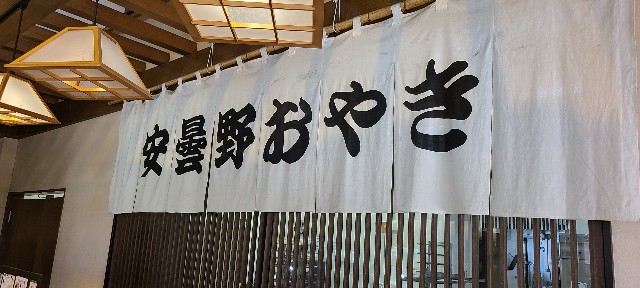 安曇野おやき